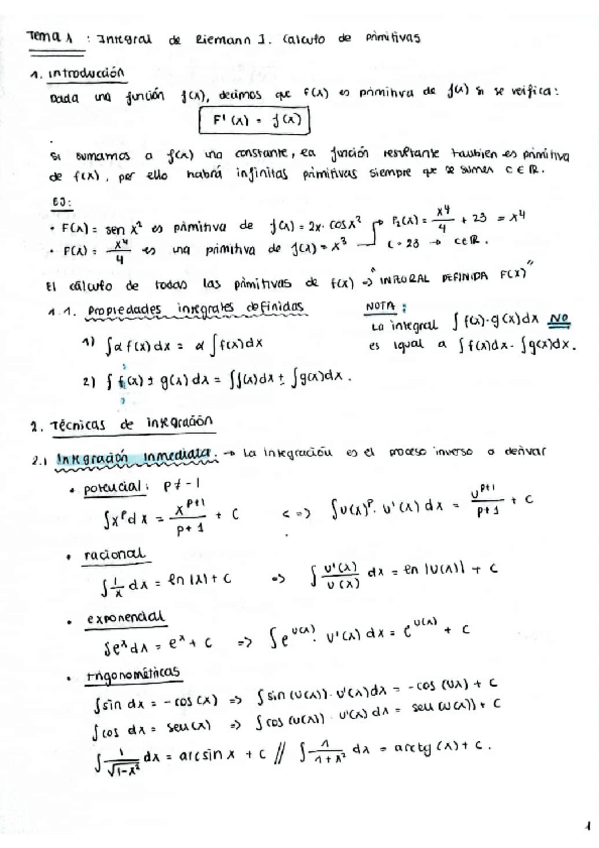 Tema 1 : Integral de Riemann I. Calculo de primitivas
1. Introducción
Dada una función f(x), decimos que F(x) es primitiva de f(x) si se verifica:
F'(x) = f(x)
Si sumamos a f(x) una constante, la función resultante tambien es primitiva
de f(x), por ello habrá infinitas primitivas siempre que se sumen C ∈ ℝ.
EJ:
• F(x) = sen x² es primitiva de f(x) = 2x · cos x² → F₂(x) = x⁴/4 + 23 = x⁴
• F(x) = x⁴/4 es una primitiva de f(x) = x³ C = 23 → C ∈ ℝ.
El cálculo de todas las primitivas de f(x) => "INTEGRAL DEFINIDA F(X)"
1.1. Propiedades integrales definidas
1) ∫ α f(x) dx = α ∫ f(x) dx
2) ∫ f(x) ± g(x) dx = ∫ f(x) dx ± ∫ g(x) dx.
NOTA:
La integral ∫ f(x) · g(x) dx NO
es igual a ∫ f(x) dx · ∫ g(x) dx.
2. Técnicas de integración
2.1 Integración inmediata. → La integración es el proceso inverso a derivar
• potencial: p ≠ -1
∫ x^p dx = x^(p+1)/(p+1) + C <=> ∫ u(x)^p · u'(x) dx = u^(p+1)/(p+1) + C
• racional
∫ 1/x dx = ln |x| + C => ∫ u'(x)/u(x) dx = ln |u(x)| + C
• exponencial
∫ e^x dx = e^x + C => ∫ e^u(x) · u'(x) dx = e^u(x) + C
• trigonométricas
∫ sin dx = - cos (x) => ∫ sin (u(x)) · u'(x) dx = - cos (ux) + C
∫ cos dx = sen (x) => ∫ cos (u(x)) · u'(x) dx = sen (u(x)) + C
∫ 1/√(1-x²) dx = arcsin x + C // ∫ 1/(1+x²) dx = arctg (x) + C.
1